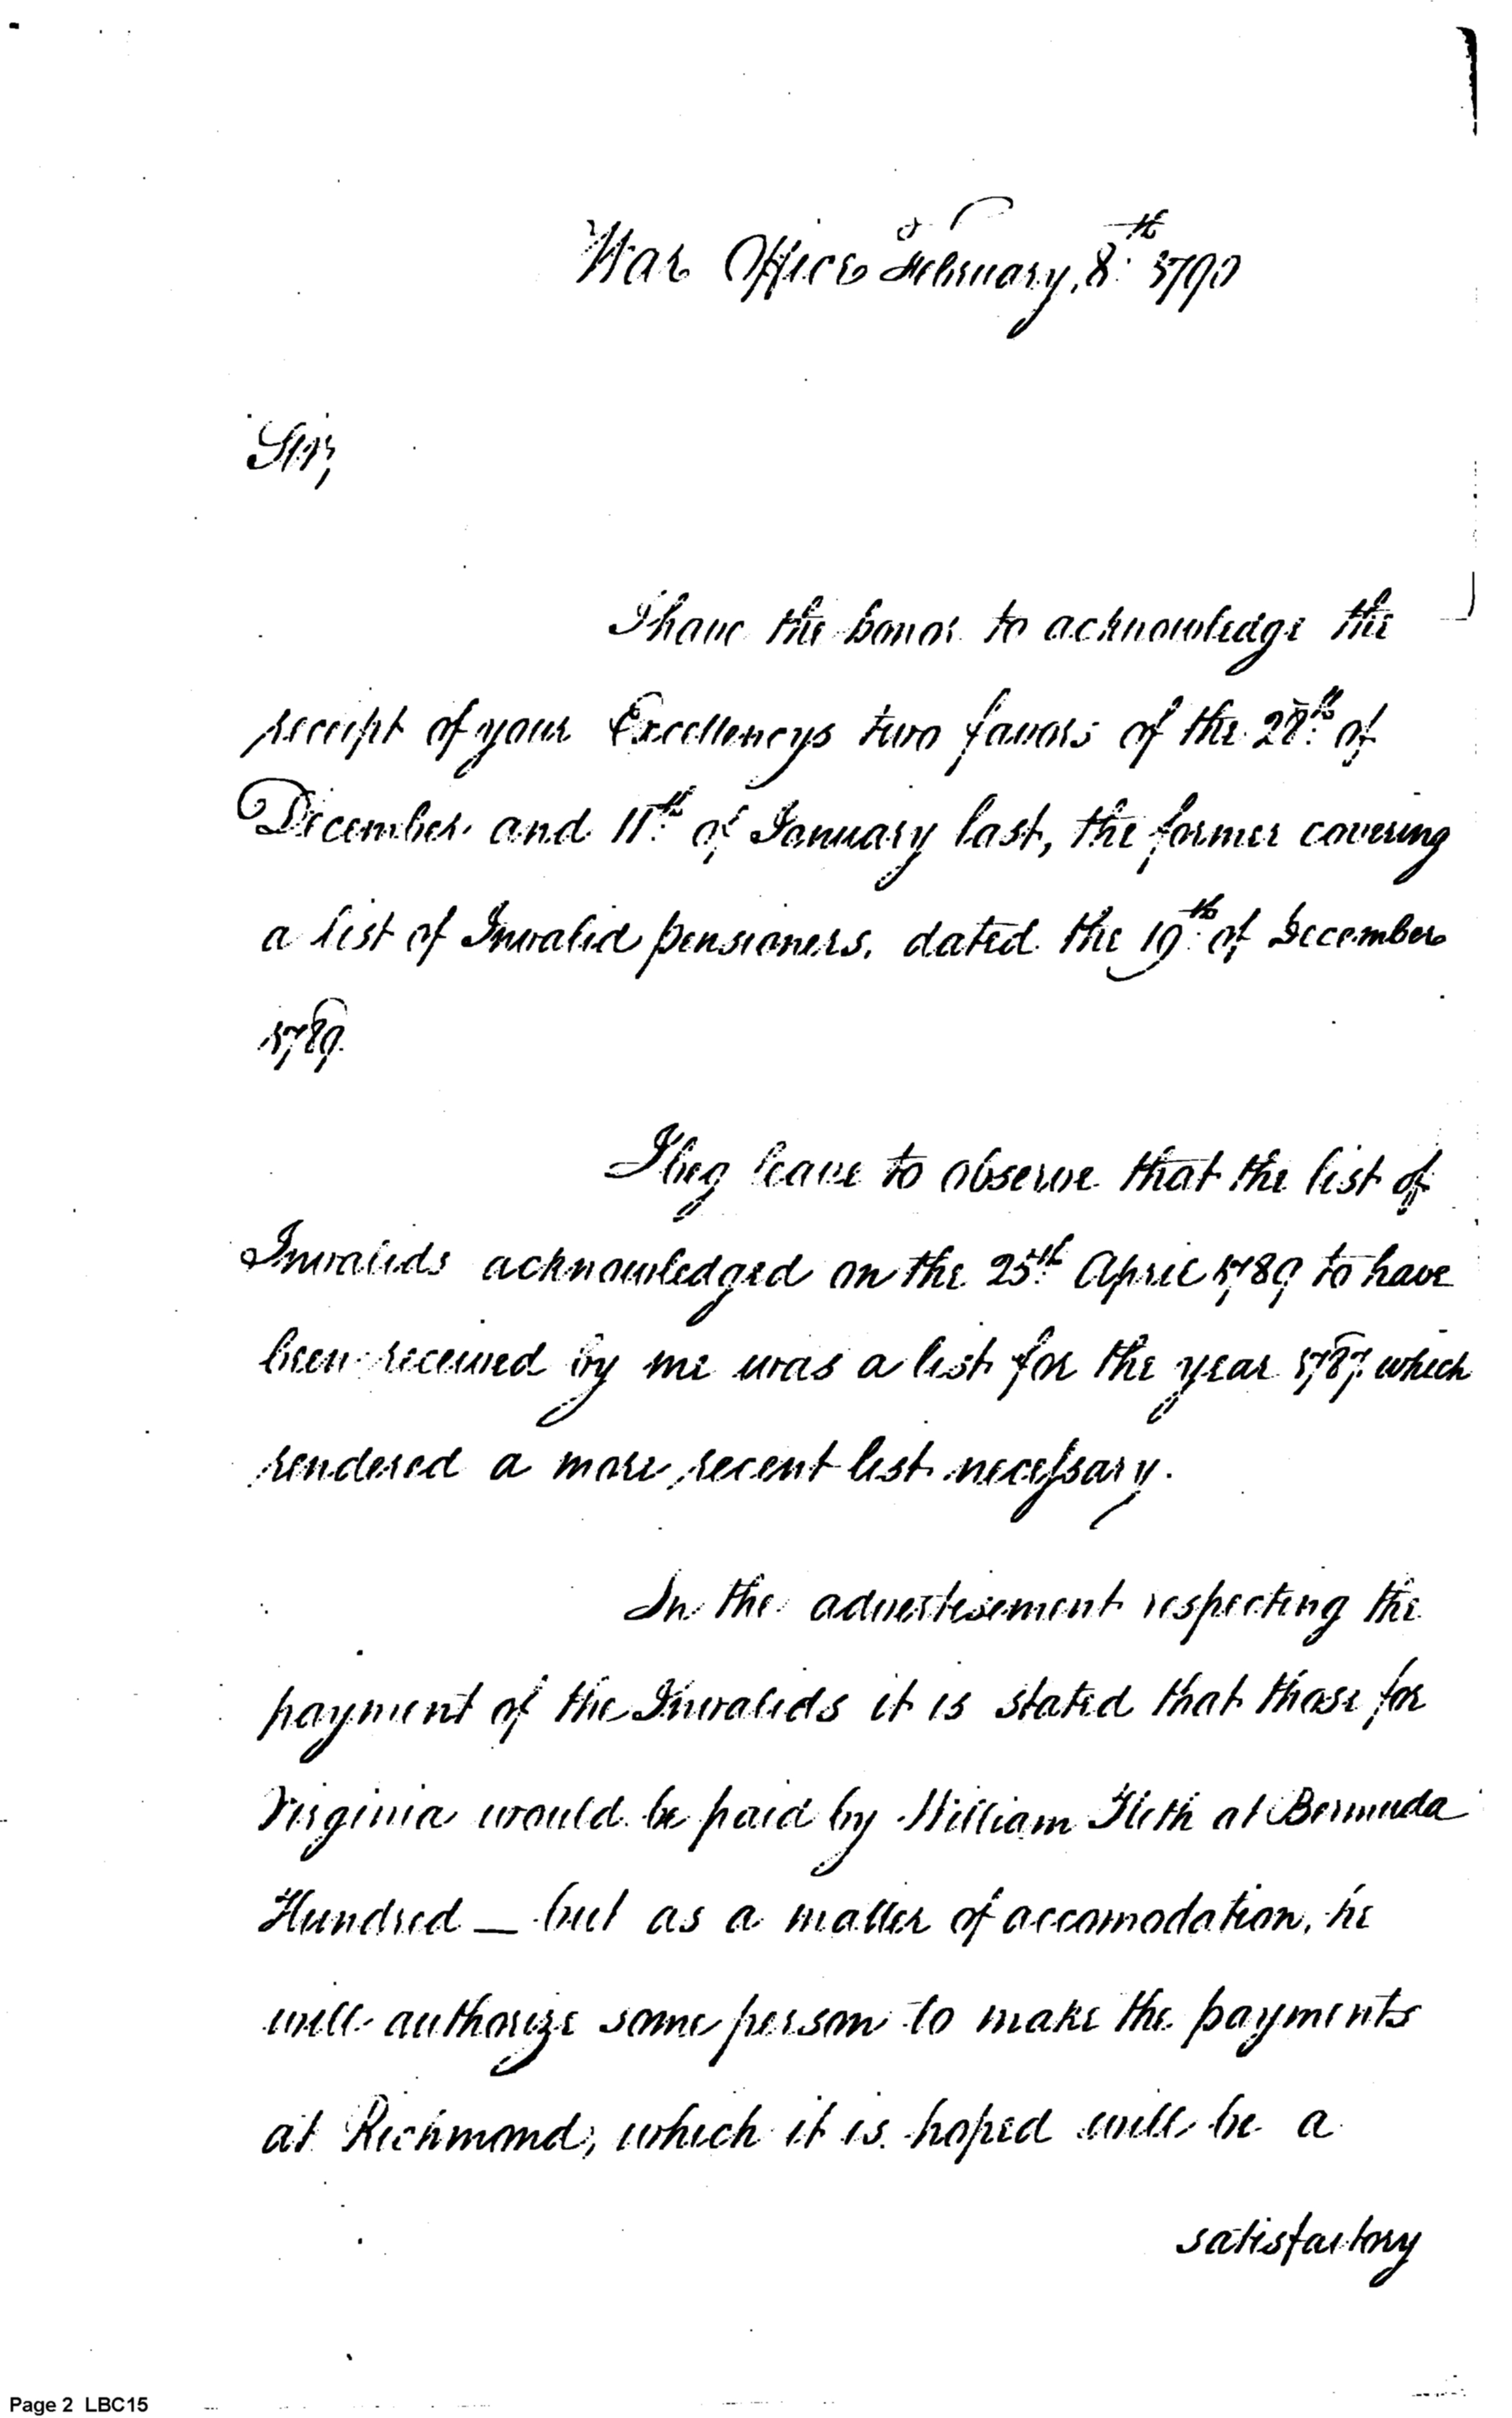 War Office February, 8th 1790
Sir,
I have the honor to acknowledge the
receipt of your Excellencys two favors of the 28th of
December and 11th of January last, the former covering
a list of Invalid pensioners, dated the 19th of December
1789
I beg leave to observe that the list of
Invalids acknowledged on the 25th April 1789 to have
been received by me was a list for the year 1787 which
rendered a more recent list necessary.
In the advertisement respecting the
payment of the Invalids it is stated that those for
Virginia would be paid by William Heth at Bermuda
Hundred — but as a matter of accomodation, he
will authorize some person to make the payments
at Richmond, which it is hoped will be a
satisfactory
Page 2 LBC15